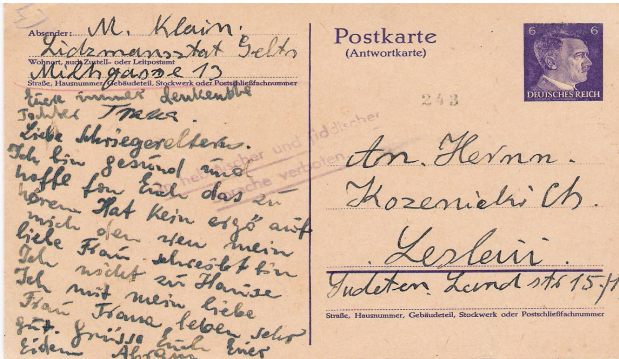 Absender: M. Klain.
Lidzmansstat Gelto
Wohnort, auch Zustell- oder Leitpostamt
Milhgasse 13
Straße, Hausnummer, Gebäudeteil, Stockwerk oder Postschließfachnummer
Eure immer denkende
Tochter Frana.
Liebe Schwiegereltern.
Ich bin gesund und
hoffe fon Euch das zu
hören Hat kein auf
mich den wen mein
liebe Frau schreibt bin
Ich nicht zu Hause
Ich mit mein liebe
Frau Frana leben sehr
gut. grüsse Euch Eier
Eidem Abram
Postkarte
(Antwortkarte)
6 6
DEUTSCHES REICH
243
und jiddischer
Sprache verboten
An. Hernn.
Kozenicki Ch.
Leslau.
Sudeten. Land str 15/1
Straße, Hausnummer, Gebäudeteil, Stockwerk oder Postschließfachnummer